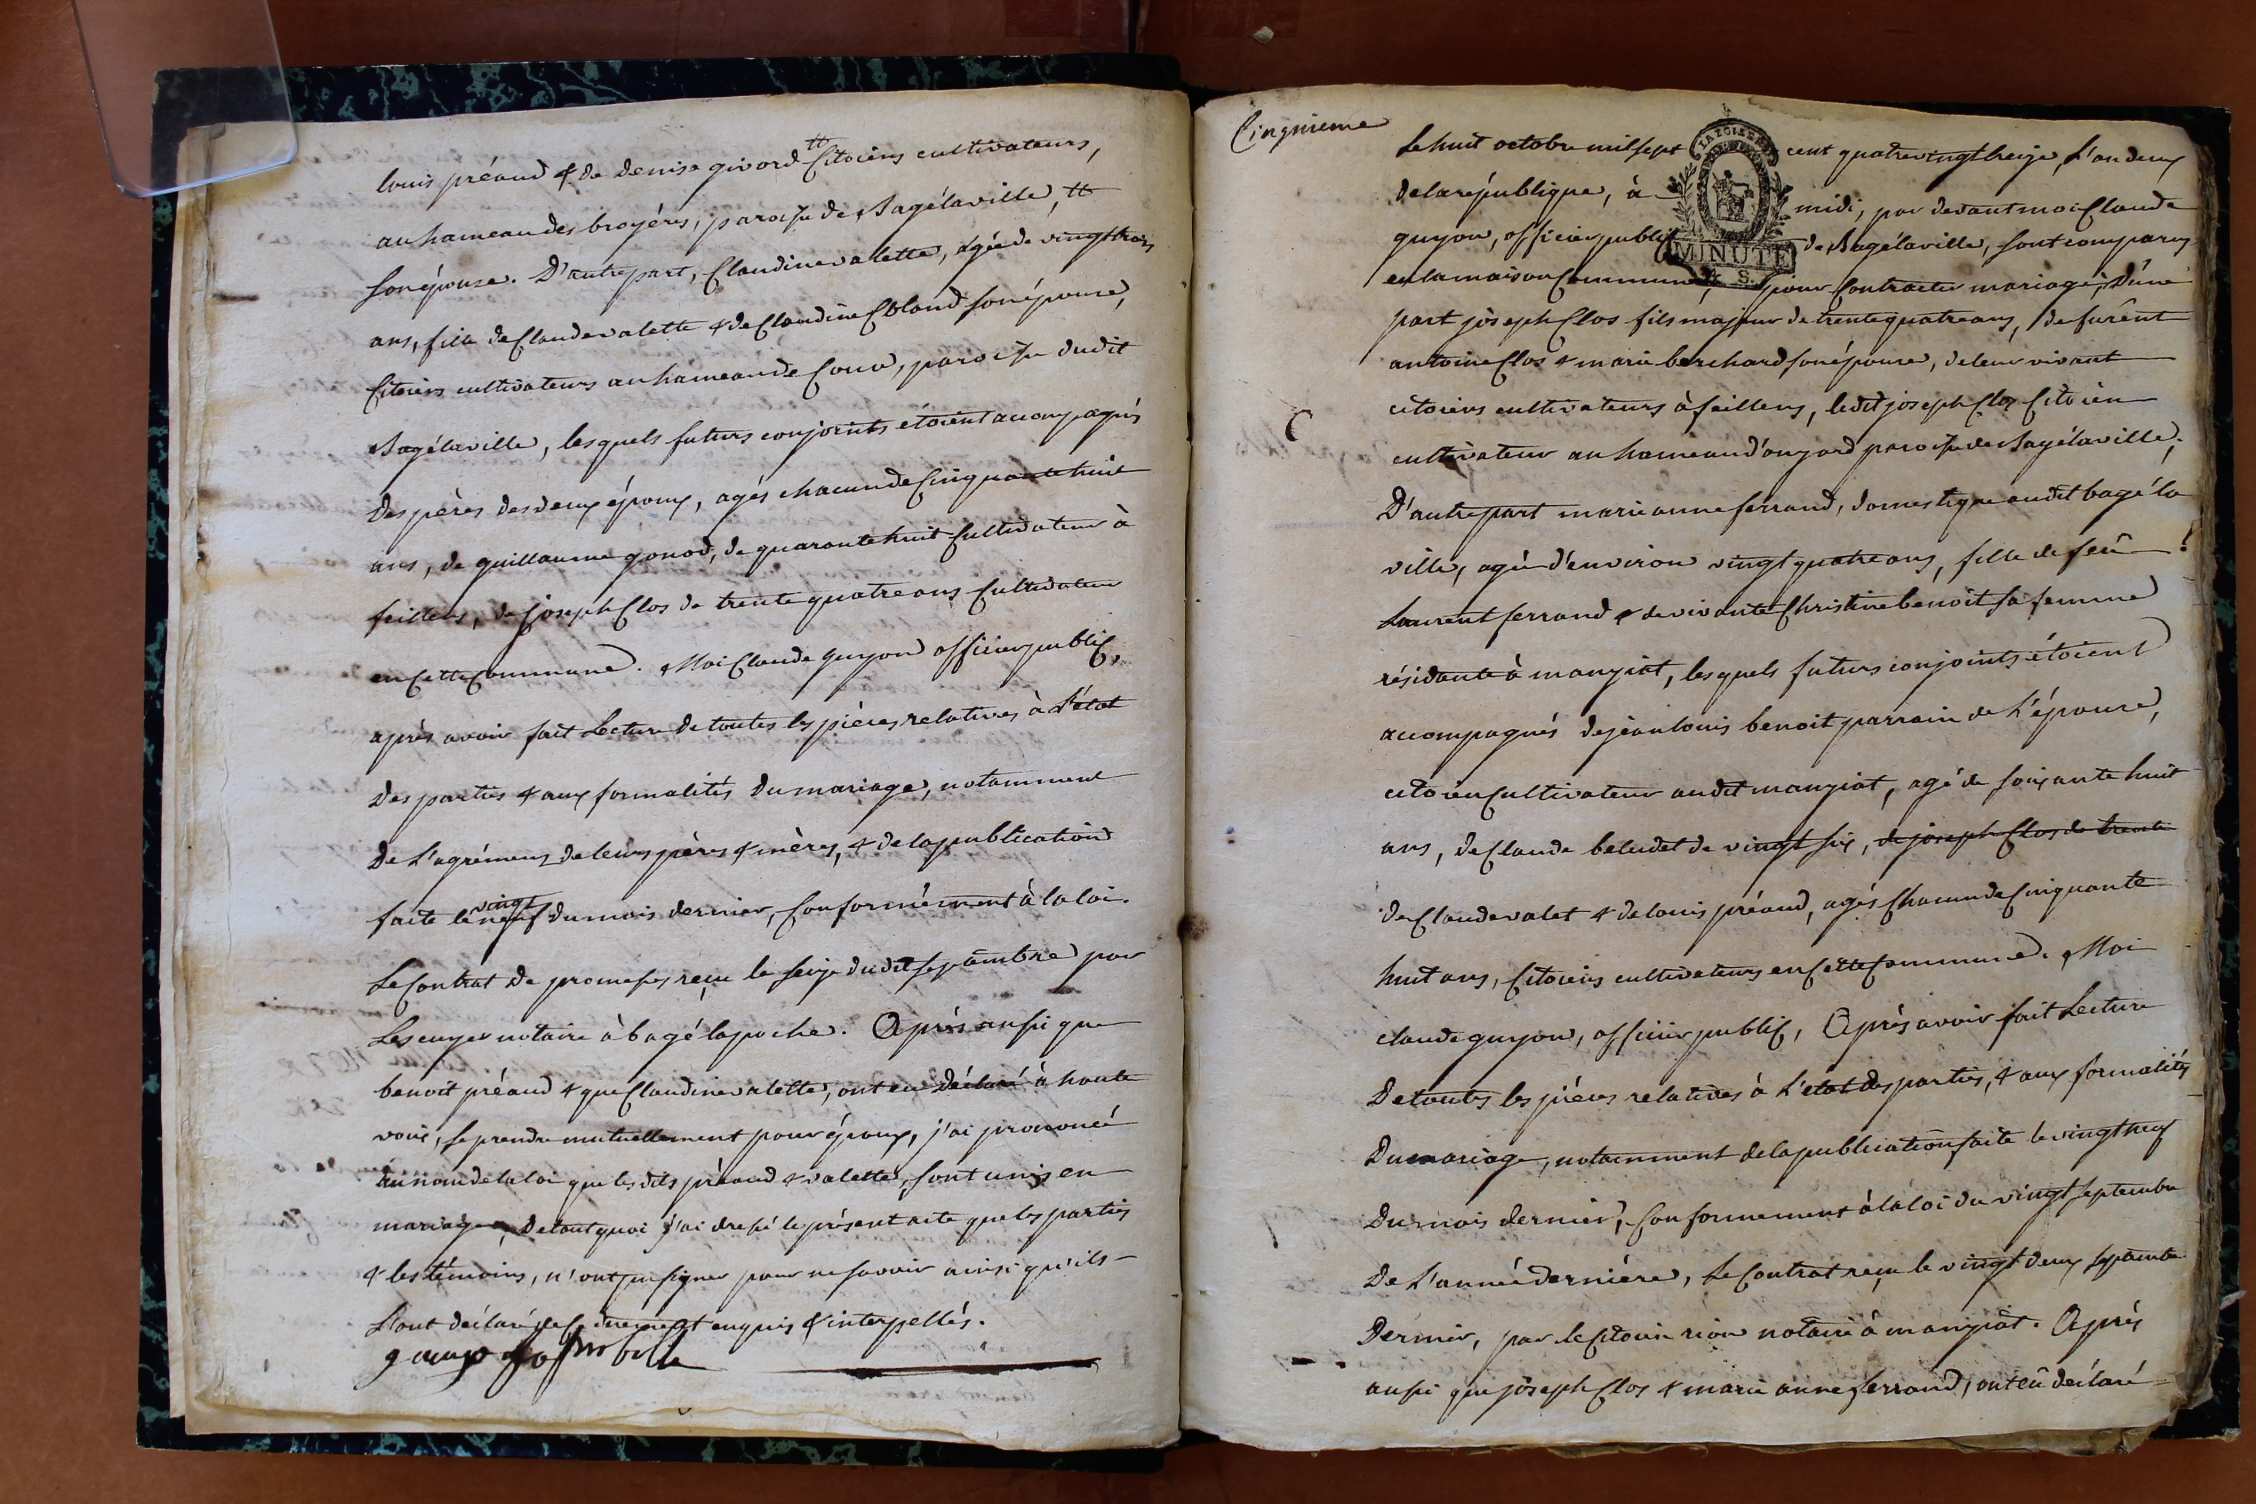 louis préaud & de denise givord tt Citoiens cultivateurs,
au hameau des broyéres, paroisse de Bagélaville, tt
son épouse. D'autre part, Claudine valette, agée de vingt trois
ans, fille de Claude valette & de Claudine Cbland son épouse,
Citoiens cultivateurs au hameau de Couo, paroisse dudit
Bagélaville, lesquels futurs conjoints étoient accompagnés
des pères des deux époux, agés chacun de Cinquante huit
ans, de guillaume gonod, de quarante huit Cultivateur à
feillens, de joseph Clos de trente quatre ans Cultivateur
en Cette Commune. Moi Claude guyon officier public,
après avoir fait Lecture de toutes les pièces relatives à L'état
des parties & aux formalités du mariage, notamment
De L'agrémens de leurs pères & mères, & de la publication
vingt
faite le neuf du mois dernier, Conformément à la loi.
Le Contrat de promesses reçu le seize dudit septembre par
Lescuyer notaire à bagé lapoche. Après aussi que
benoit préaud & que Claudine valette, ont eu déclaré à haute
voix, se prendre mutuellement pour époux, j'ai prononcé
au nom de la loi que lesdits préaud & valette, sont unis en
mariage, De tout quoi j'ai dressé le présent acte que les parties
& les témoins, n'ont pu signer pour ne savoir ainsi qu'ils
L'ont déclaré de ce dûement enquis & interpellés.
guyon
Cinquieme
Le huit octobre mil sept cent quatre vingt treize, L'an deux
LA LOI ET LE
de la république, à midi, par devant moi Claude
guyon, officier public de Bagélaville, sont comparus
MINUTE
4 S.
en la maison Commune, pour Contracter mariage, D'une
part joseph Clos fils majeur de trente quatre ans, de furênt
antoine Clos & marie berchard son épouse, de leur vivant
citoiens cultivateurs à feillens, ledit joseph Clos Citoien
cultivateur au hameau d'onjard paroisse de Bagélaville,
D'autre part marie anne ferrand, domestique audit bagé la
ville, agée d'environ vingt quatre ans, fille de feû
Laurent ferrand & de vivante Christine benoit sa femme
résidante à manziat, lesquels futurs conjoints étoient
accompagnés de jean louis benoit parrain de L'épouse,
citoien Cultivateur audit manziat, agé de soixante huit
ans, de Claude beludet de vingt six, de joseph Clos de trente
de Claude valet & de louis préaud, agés Chacun de Cinquante
huit ans, Citoiens cultivateurs en Cette Commune. Moi
claude guyon, officier public, Après avoir fait Lecture
De toutes les piéces relatives à L'état des parties, & aux formalités
Du mariage, notamment de la publication faite le vingt neuf
Du mois dernier, Conformement à la loi du vingt septembre
De L'année dernière, Le Contrat reçu le vingt deux septembre
Dernier, par le Citoien rion notaire à manziat. Après
aussi que joseph Clos & marie anne ferrand, ont eû déclaré